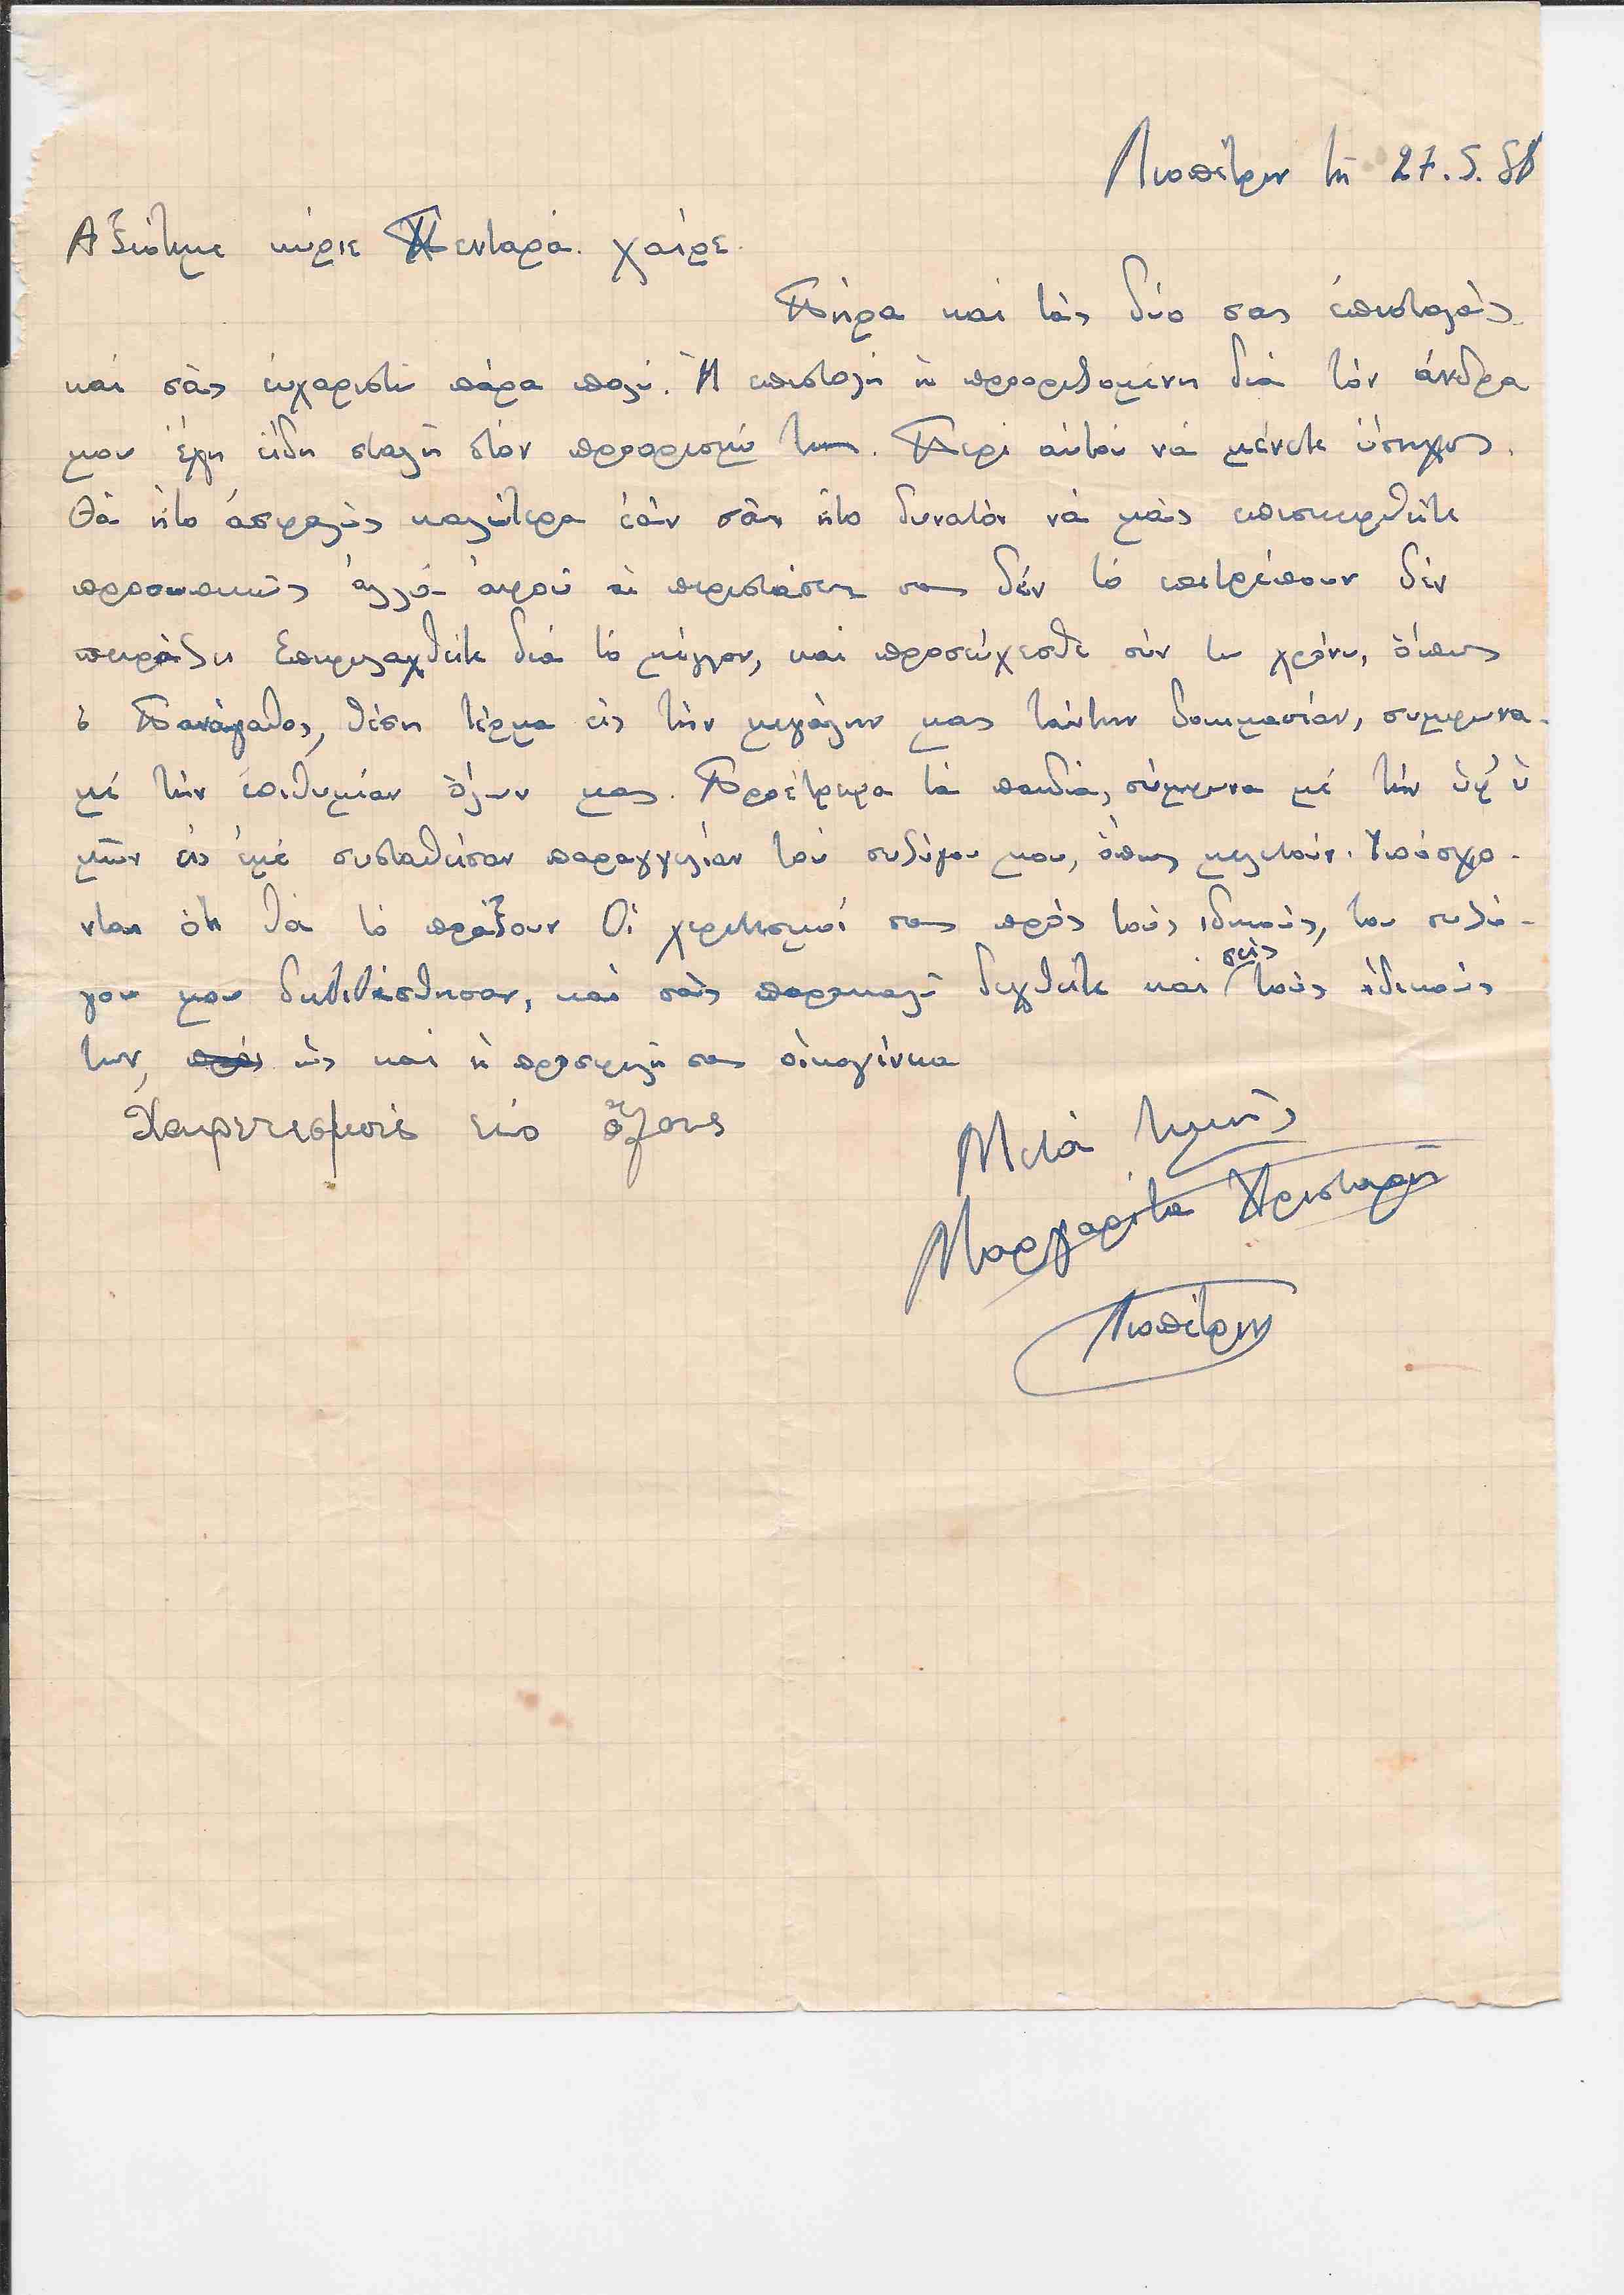 Λιοπέτριν τῇ 27.5.58
Ἀξιότιμε κύριε Πενταρά. χαίρε.
Πήρα καί τάς δύο σας ἐπιστολάς.
καί σᾶς εὐχαριστῶ πάρα πολύ. Ἡ επιστολή ἡ προοριζομένη διά τόν άνδρα
μου ἔχη είδη σταλῆ στόν προορισμό της. Περί αὐτού νά μένετε ὕσηχος.
Θά ἦτο ἀσφαλῶς καλύτερα ἐάν σᾶς ἦτο δυνατόν νά μᾶς επισκεφθείτε
προσωπικῶς ἀλλά ἀφοῦ αἱ περιστάσεις σας δέν τό επιτρέπουν δέν
πειράζει Επιφυλαχθείτε διά τό μέλλον, καί προσεύχεσθε σύν τω χρόνω, ὅπως
ὁ Πανάγαθος, θέση τέρμα εἰς τήν μεγάλην μας ταύτην δοκιμασίαν, συμφωνα.
μέ τήν ἐπιθυμίαν ὅλων μας. Προέτρεψα τά παιδιά, σύμφωνα μέ τήν ὑφ' ὑ
μῶν εἰς ἐμέ συσταθείσαν παραγγελίαν τοῦ συζύγου μου, ὅπως μελετούν. Υπόσχο-
νται ὅτι θά τό πράξουν Οἱ χερετισμοί σας πρός τούς ιδικούς, του συζύ-
γου μου διεβιβάσθησαν, καί σᾶς παρακαλῶ δεχθείτε καί σεῖς τούς ιδικούς
των, ὡς καί ἡ προσφιλή σας οἰκογένεια
Χαιρετισμούς είς ὅλους
Μετά τιμῆς
Μαργαρίτα Πρισταρῆ
Λιοπέτριν